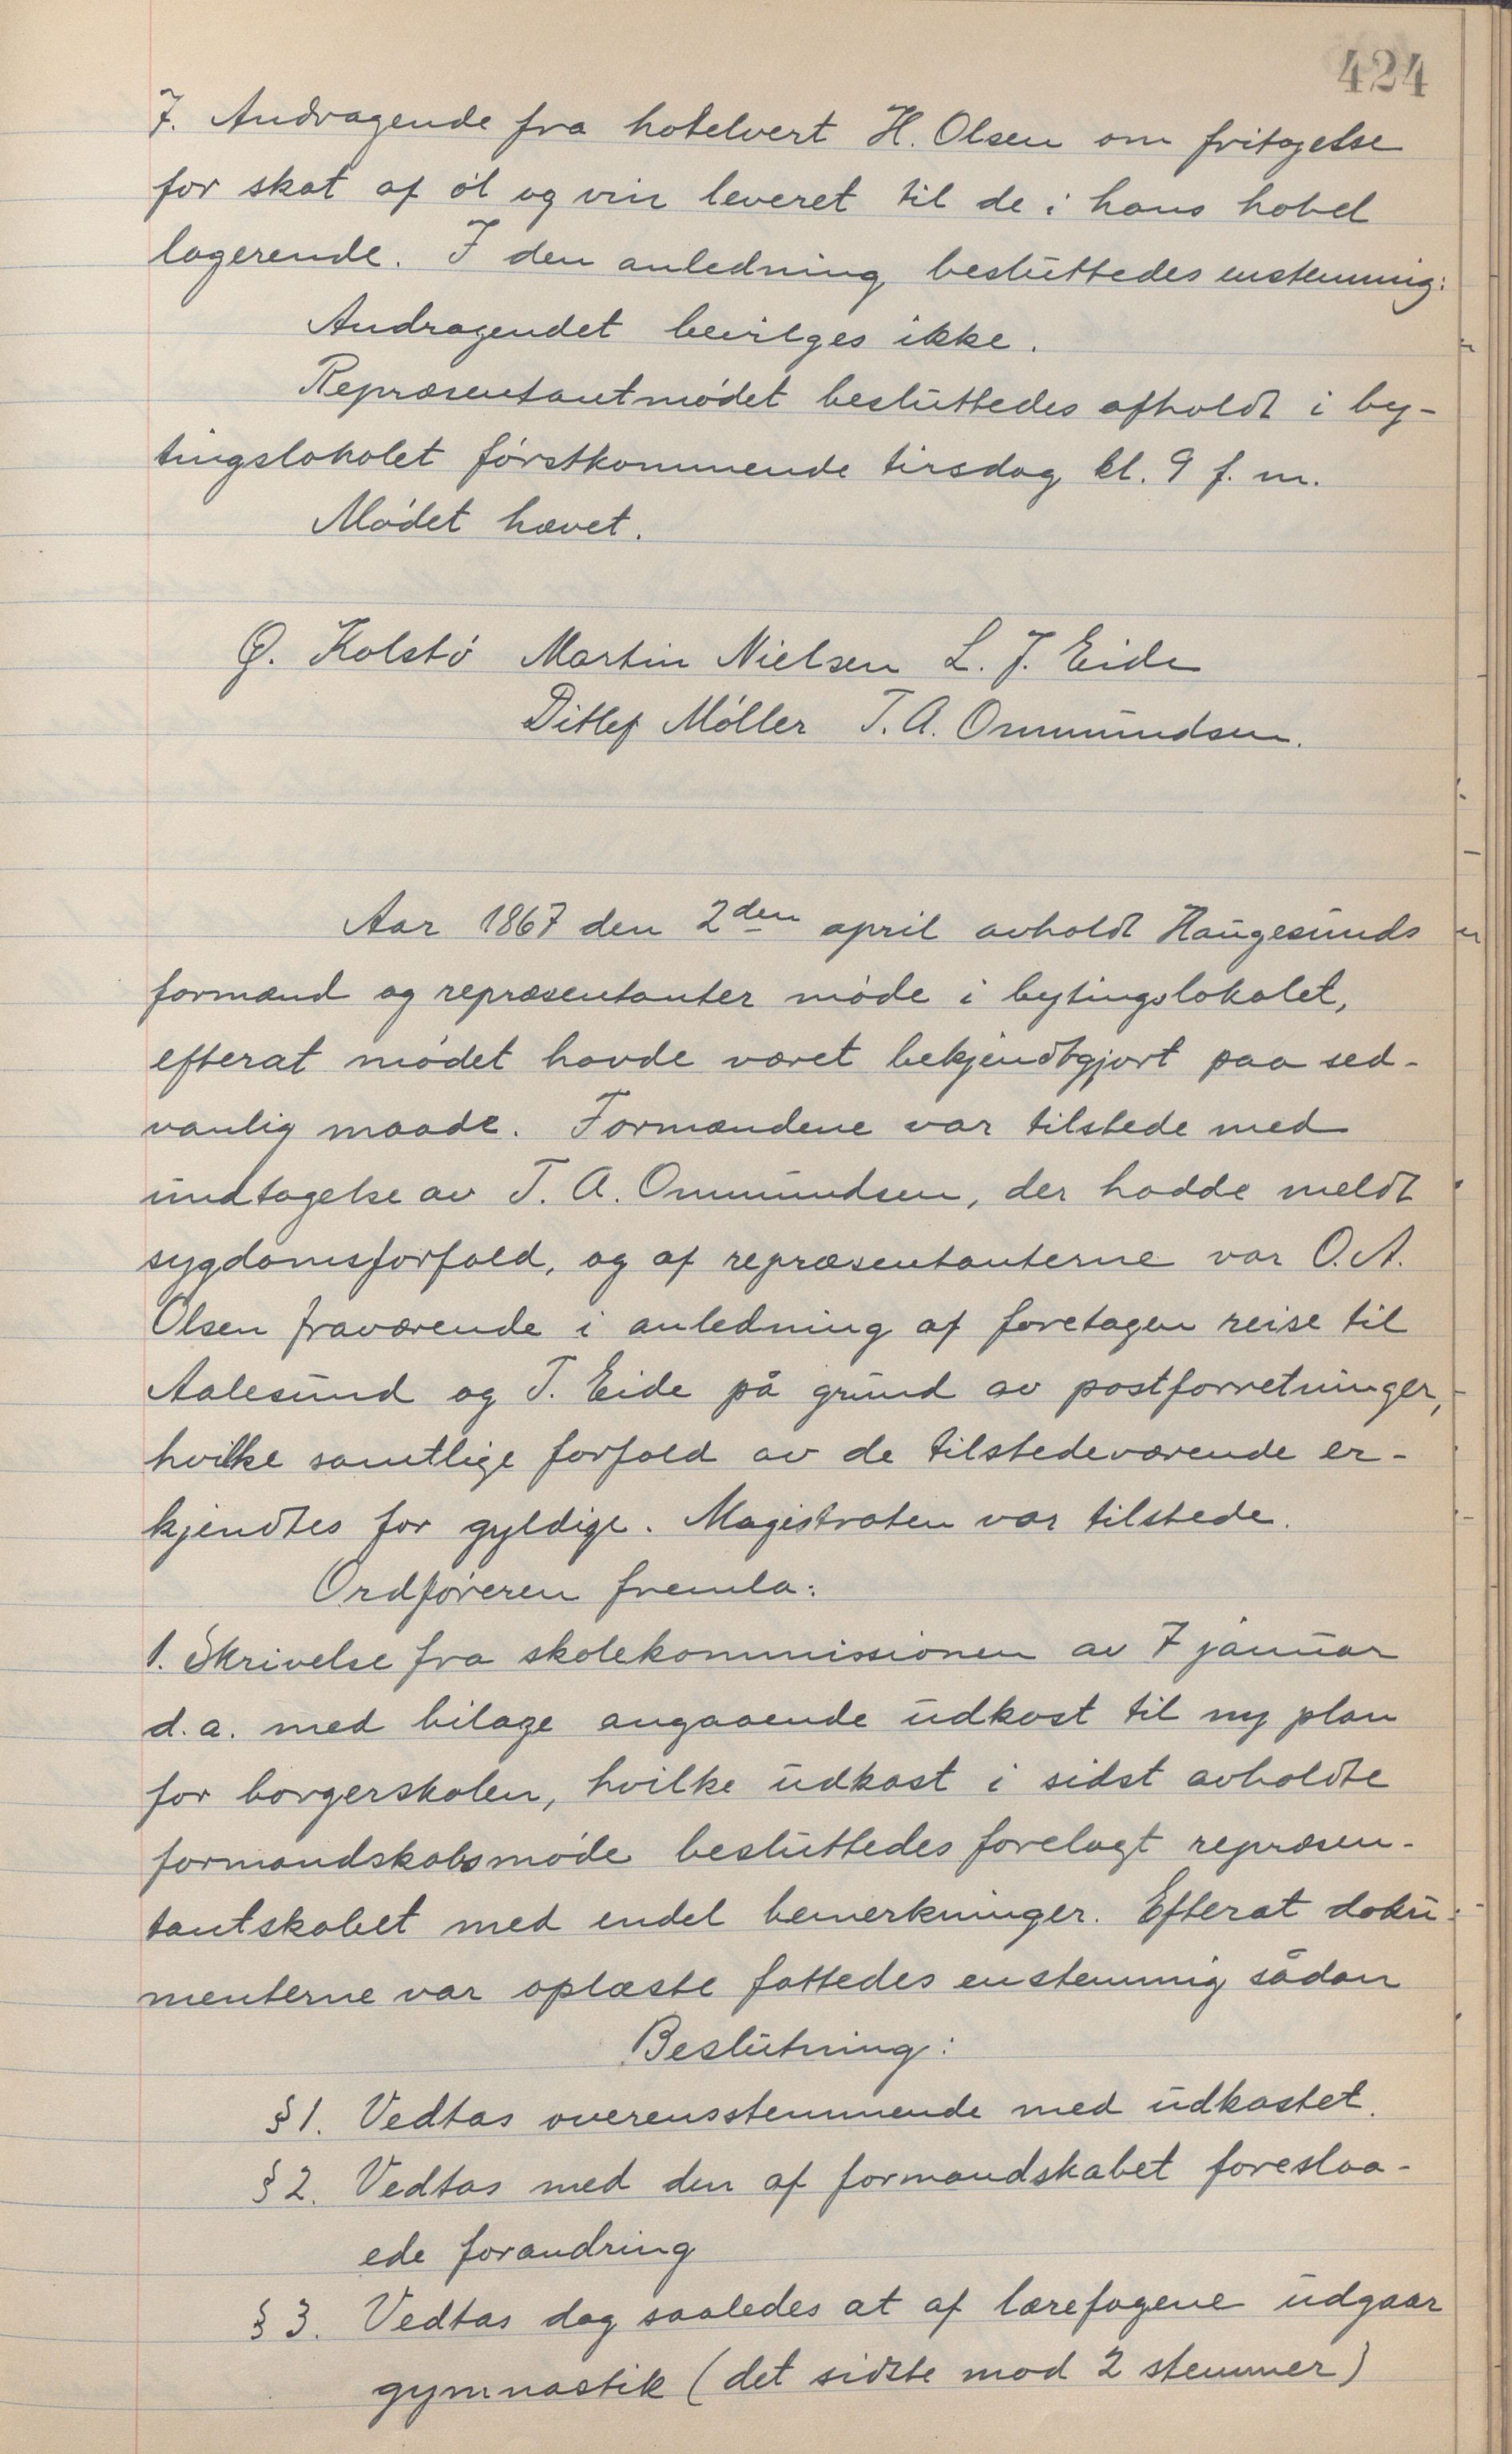 424
7. Andragende fra hotelvert H. Olsen om fritagelse
for skat af öl og vin leveret til de i hans hotel
logerende. I den anledning besluttedes enstemmig:
Andragendet bevilges ikke.
Repræsentantmødet besluttedes afholdt i by-
tingslokalet førstkommende tirsdag kl. 9 f. m.
Mødet hævet.
Ø. Kolstø Martin Nielsen L. J. Eide
Ditlef Møller T. A. Ommundsen.
Aar 1867 den 2den april avholdt Haugesunds
formænd og repræsentanter møde i bytingslokalet,
efterat mødet havde været bekjendtgjort paa sed-
vanlig maade. Formændene var tilstede med
undtagelse av T. A. Ommundsen, der hadde meldt
sygdomsforfald, og af repræsentanterne var O. A.
Olsen fraværende i anledning af foretagen reise til
Aalesund og T. Eide på grund av postforretninger,
hvilke samtlige forfald av de tilstedeværende er-
kjendtes for gyldige. Magistraten var tilstede.
Ordføreren fremla:
1. Skrivelse fra skolekommissionen av 7 januar
d. a. med bilage angaaende udkast til ny plan
for borgerskolen, hvilke udkast i sidst avholdte
formandskabsmøde besluttedes forelagt repræsen-
tantskabet med endel bemerkninger. Efterat doku-
menterne var oplæste fattedes enstemmig sådan
Beslutning:
§ 1. Vedtas overensstemmende med udkastet.
§ 2. Vedtas med den af formandskabet foreslaa-
ede forandring
§ 3. Vedtas dog saaledes at af lærefagene udgaar
gymnastik (det sidste mod 2 stemmer)